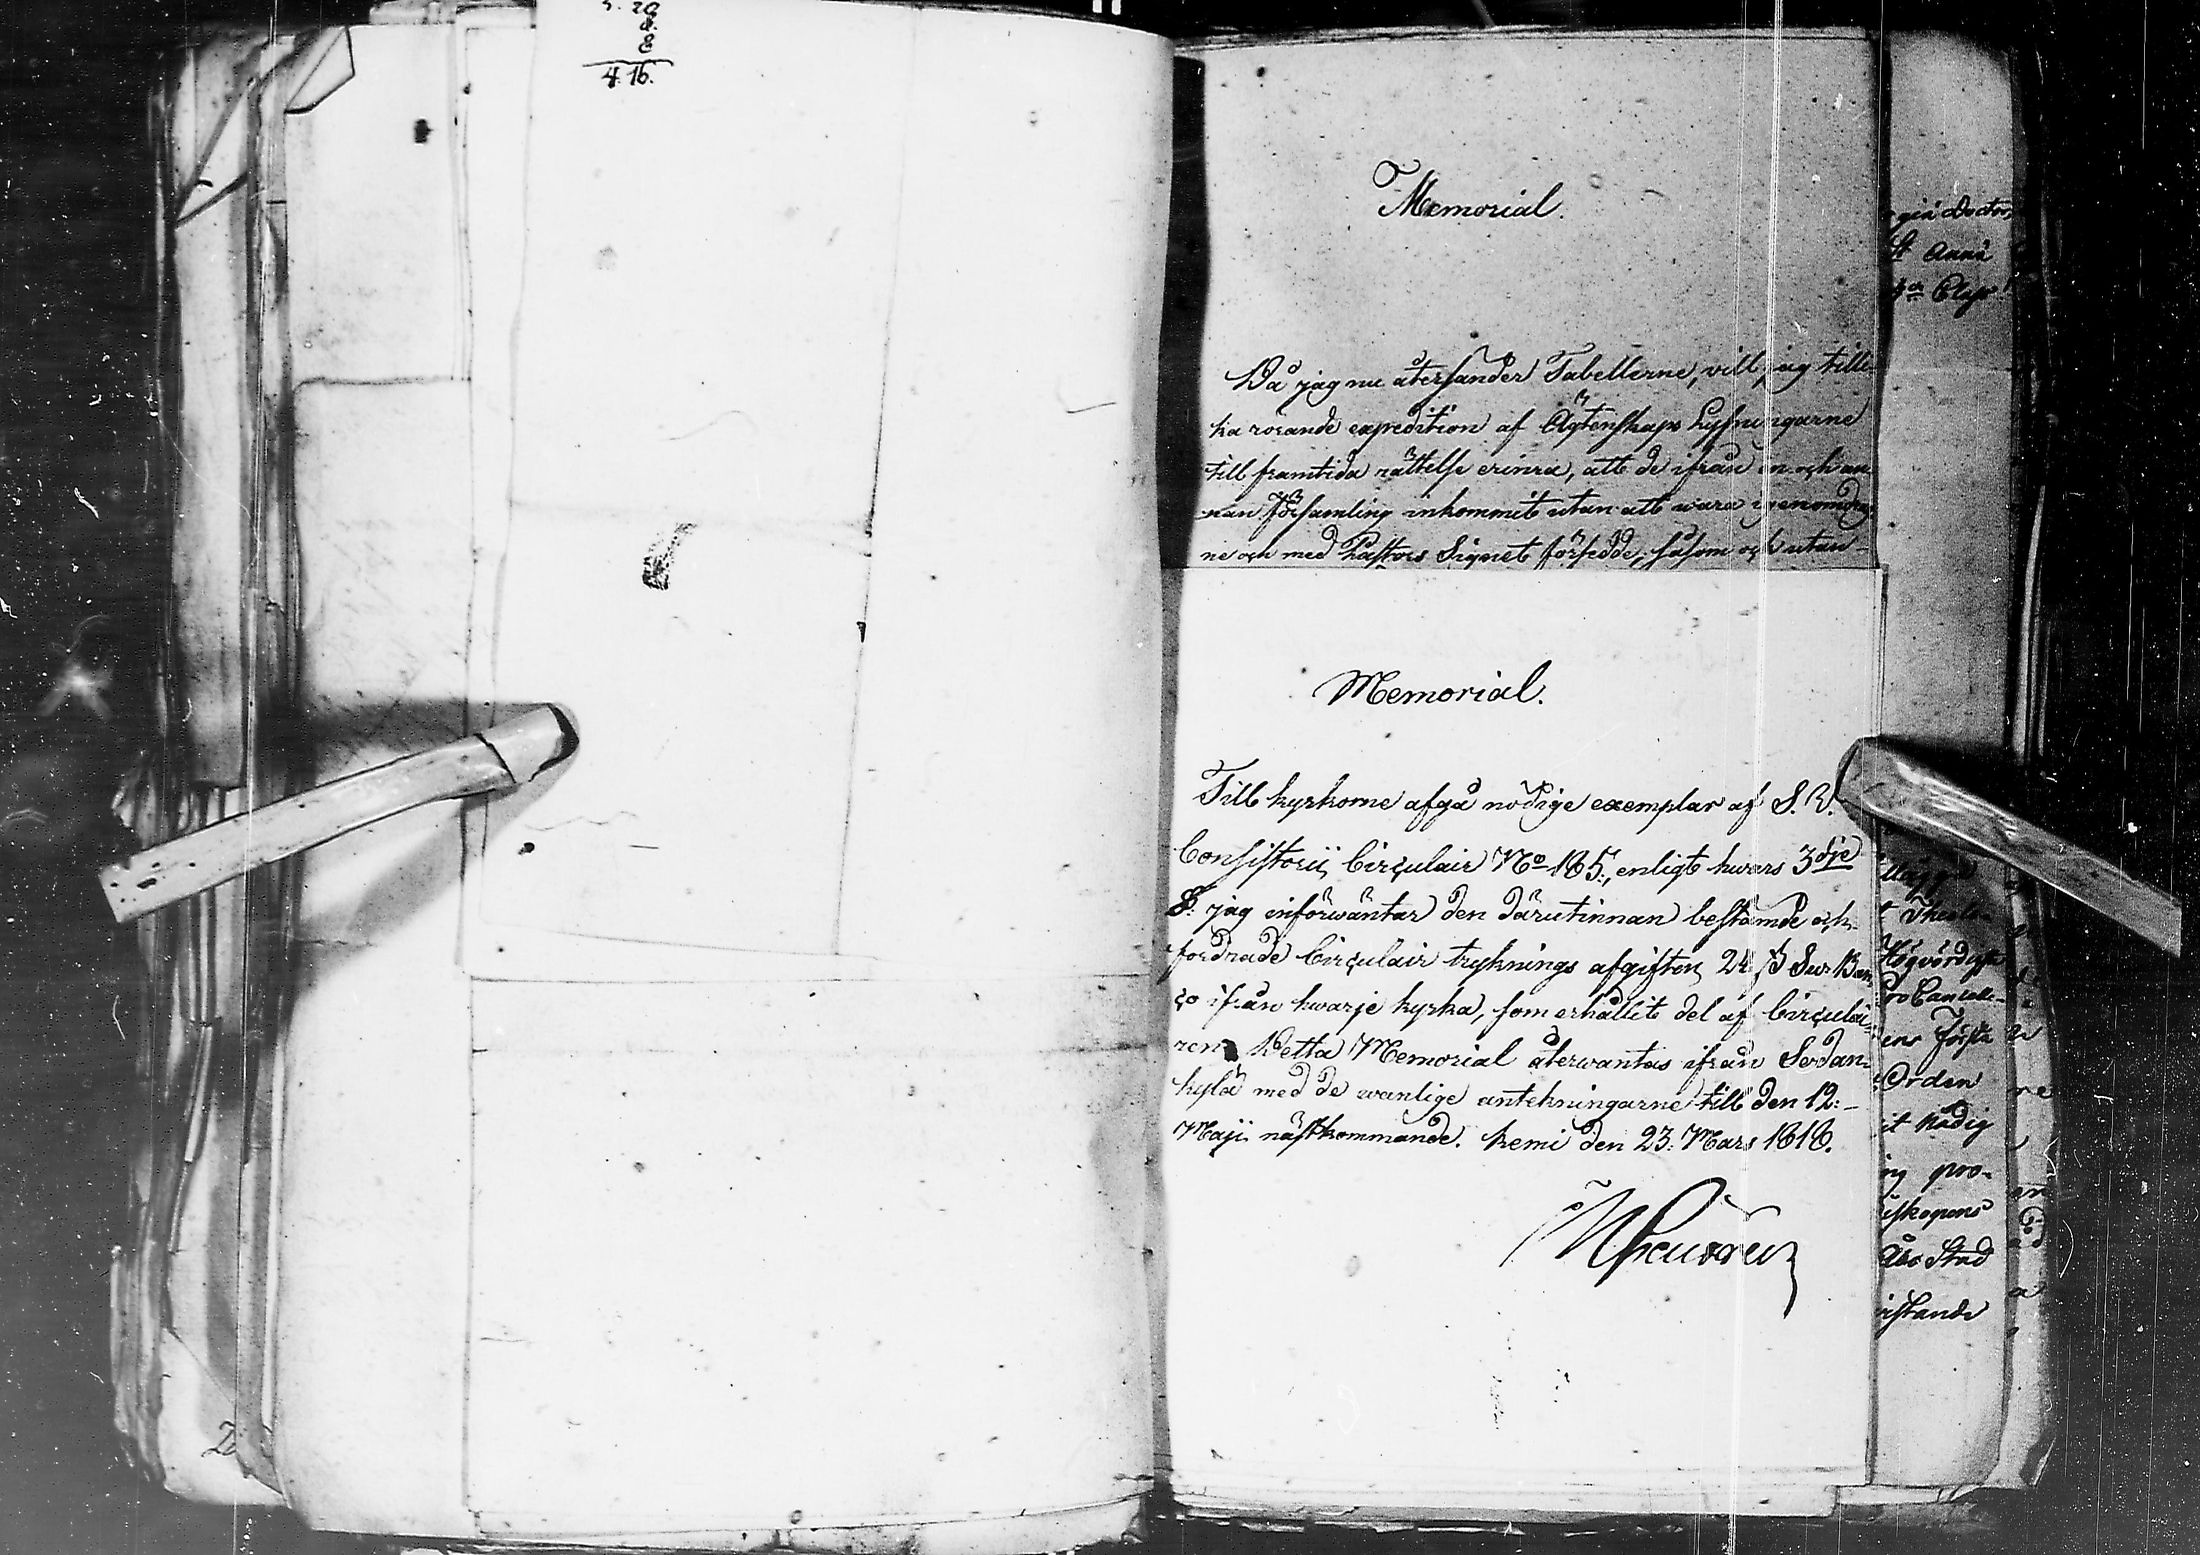 8.
8
4. 16.
Memorial.
Då jag nu återsänder Tabellerne, vill jag tille
ka rörande expedition af Ägtenskaps Lysningarne
till framtida rättelse erinra, att de ifrån en och an
nan Församling inkommit utan att wara igenomdrag
ne och med Pastors Signet försedde, såsom och utan-
Memorial.
Till kyrkorne afgå nödige exemplar af S. V.
Consistorii Circulair No 185, enligt hwars 3dje
§: jag införwäntar den därutinnan bestämde och
fordrade Circulair tryknings afgiften 24 ß Sw. Ban
co ifrån hwarje kyrka, som erhållit del af Circulai
ren. Detta Memorial återwäntas ifrån Sodan-
kylä med de wanlige antekningarne till den 12:
Maji nästkommande. Kemi den 23: Mars 1818.
giä Doctor,
St Annä
Högvördige
ens Förste
Orden
it Nådig
ng pro-
iskopens
Åbo Stad